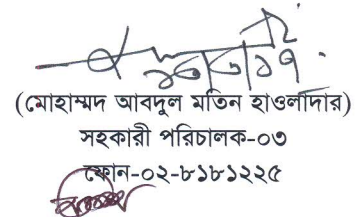 (মোহাম্মদ আবদুল মতিন হাওলাদার)
সহকারী পরিচালক-০৩
ফোন-০২-৮১৮১২২৫